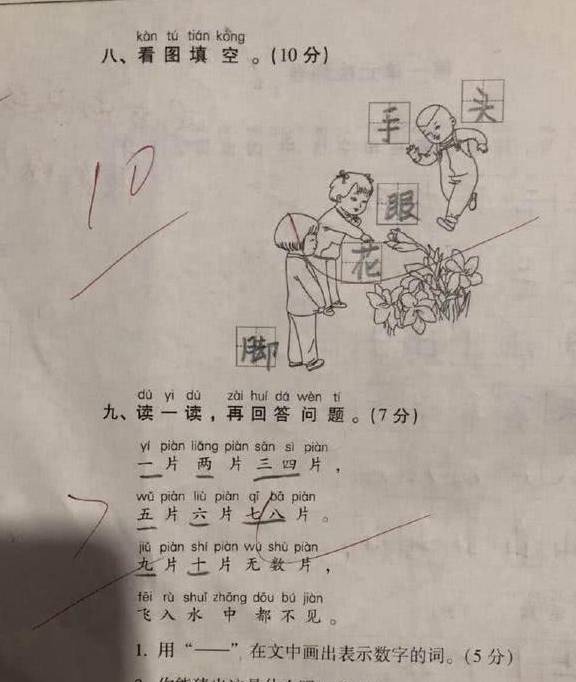 kàn tú tián kòng
八、看图填空。(10分)
10
头
手
眼
花
脚
dú yi dú zài huí dá wèn tí
九、读一读，再回答问题。(7分)
yí piàn liǎng piàn sān sì piàn
一片两片三四片，
wǔ piàn liù piàn qī bā piàn
五片六片七八片。
7
jiǔ piàn shí piàn wú shù piàn
九片十片无数片，
fēi rù shuǐ zhōng dōu bú jiàn
飞入水中都不见。
1. 用“——”在文中画出表示数字的词。(5分)